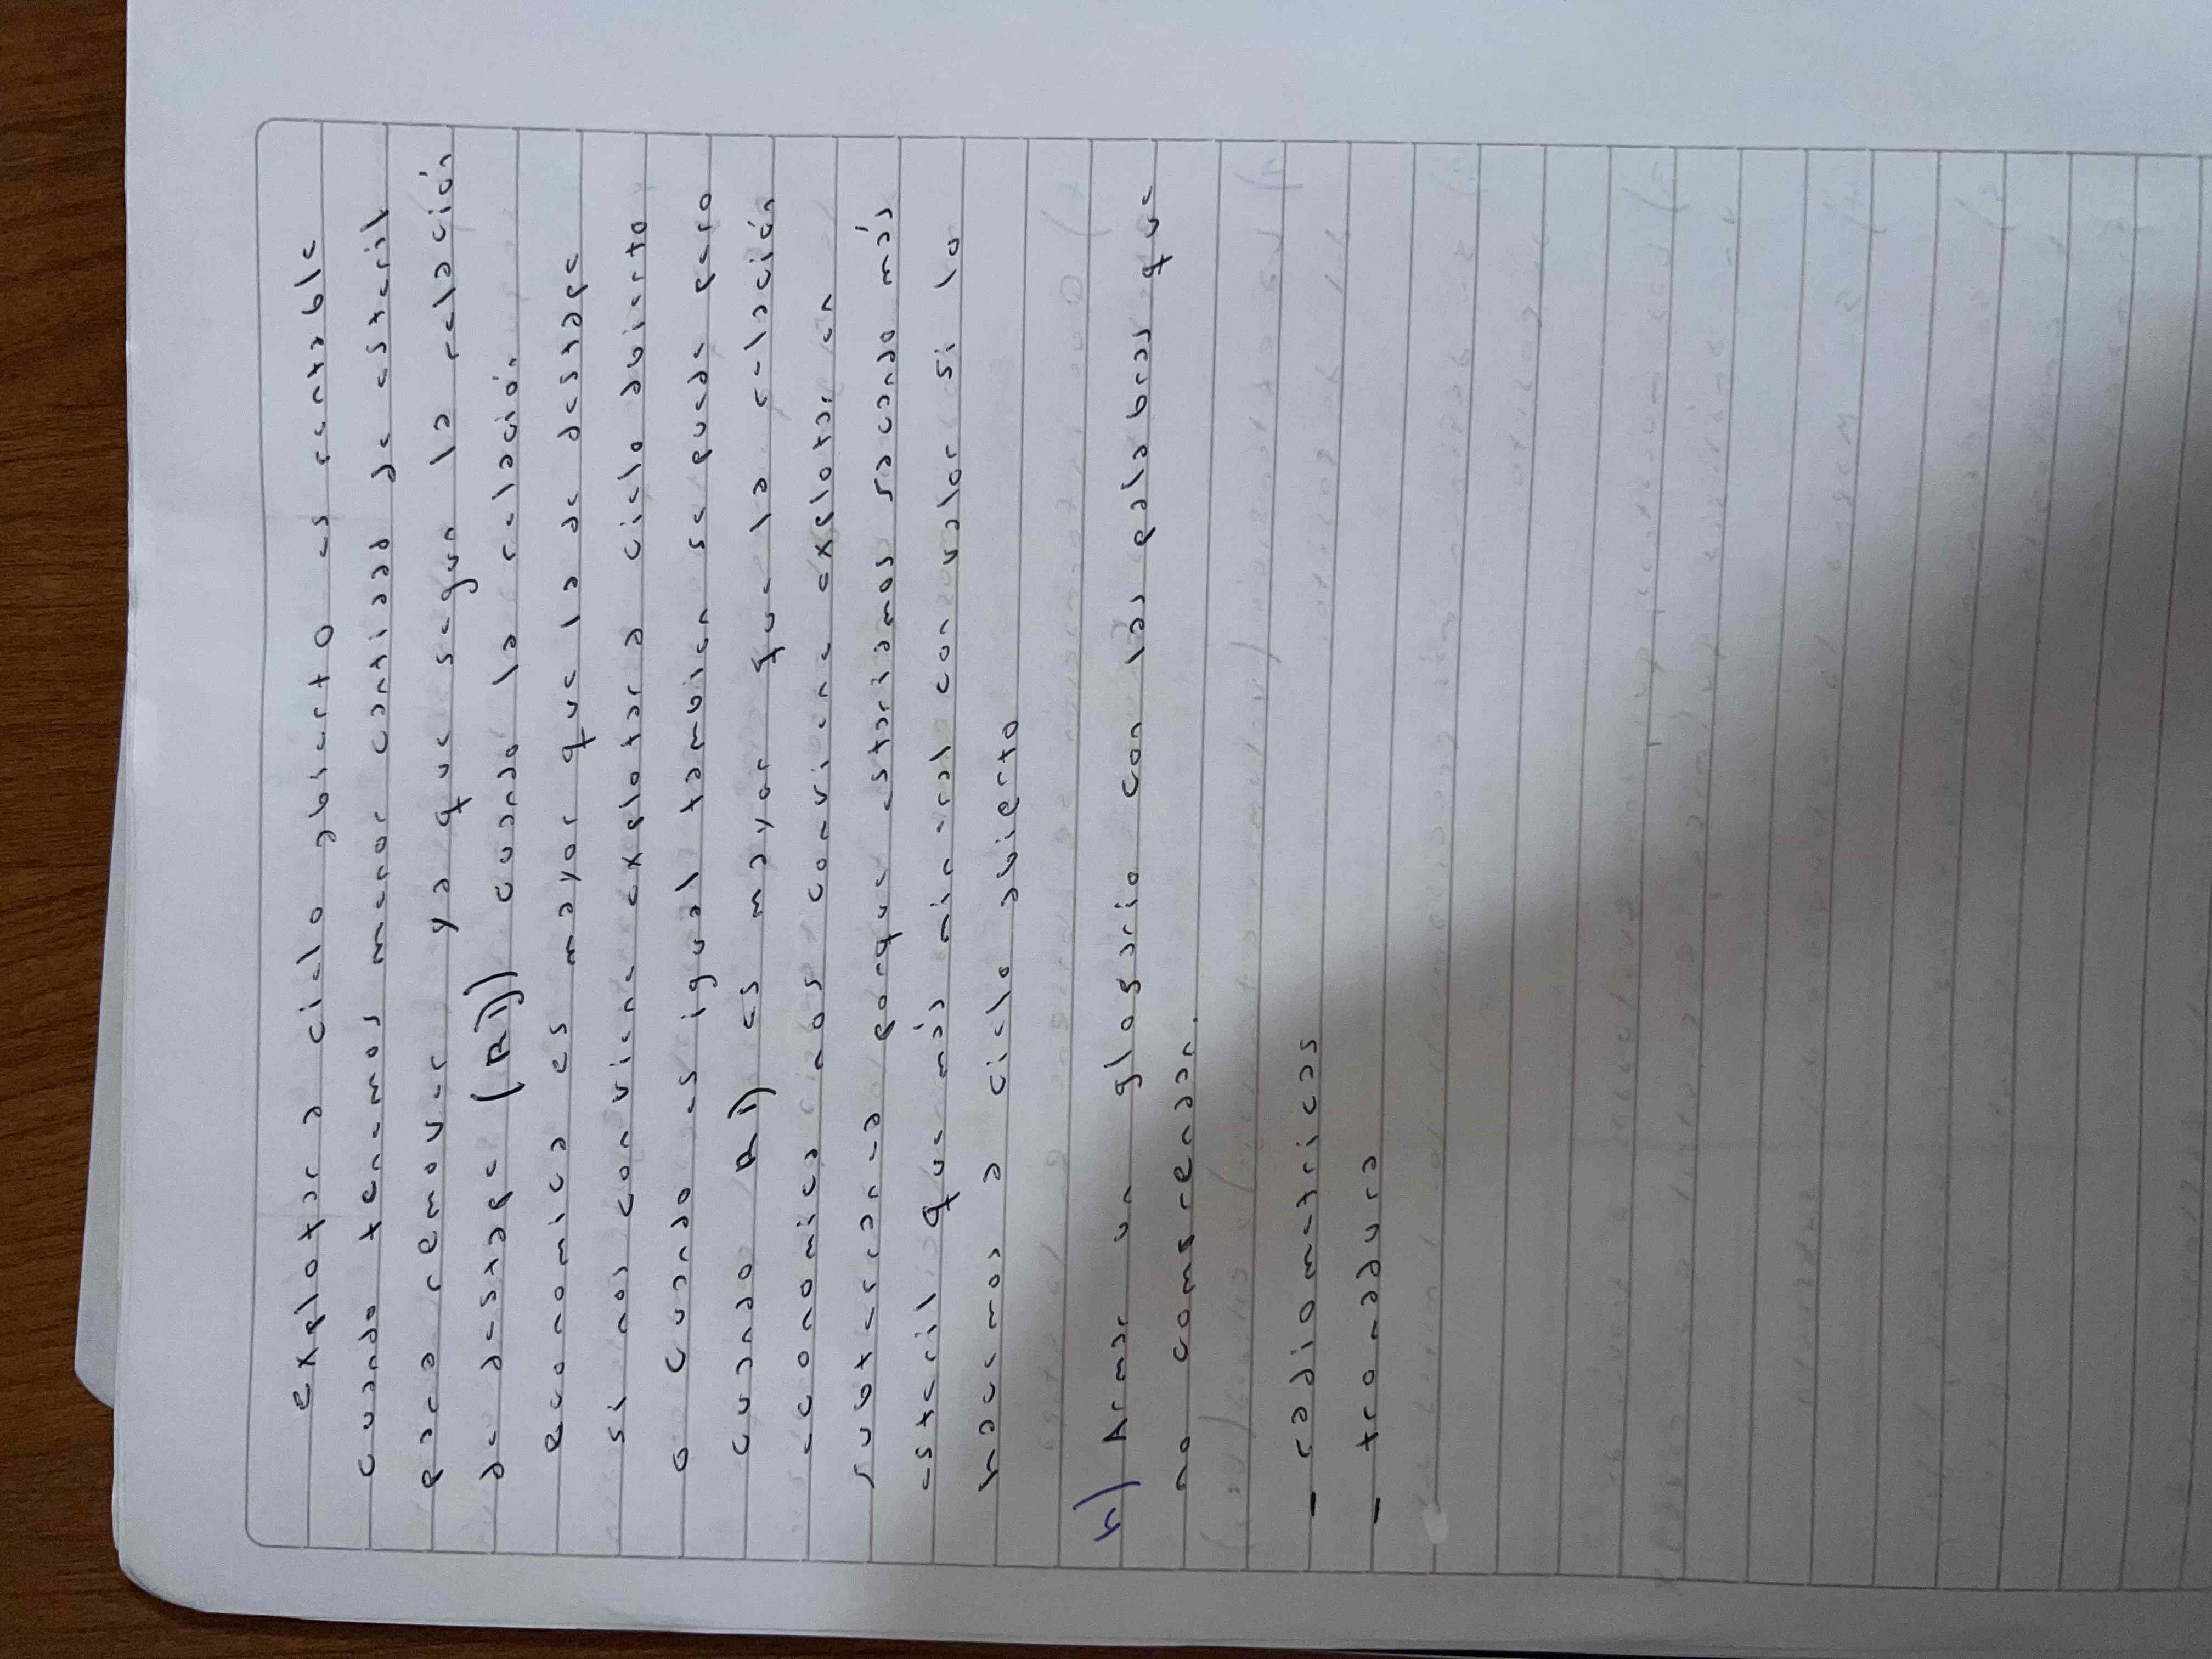 explotar a ciclo abierto es rentable
cuando tenemos menor cantidad de esteril
para remover ya que segun la relación
de destape (R)) cuando la relación
economica es mayor que la de destape
si nos conviene explotar a ciclo abierto
o cuando es igual tambien se puede pero
cuando R) es mayor que la relación
economica nos conviene explotar en
subterranea porque estariamos sacando más
esteril que más mineral con valor si lo
hacemos a ciclo abierto
h) Armar un glosario con las palabras que
no comprendan.
- radiometricas
- tronadura